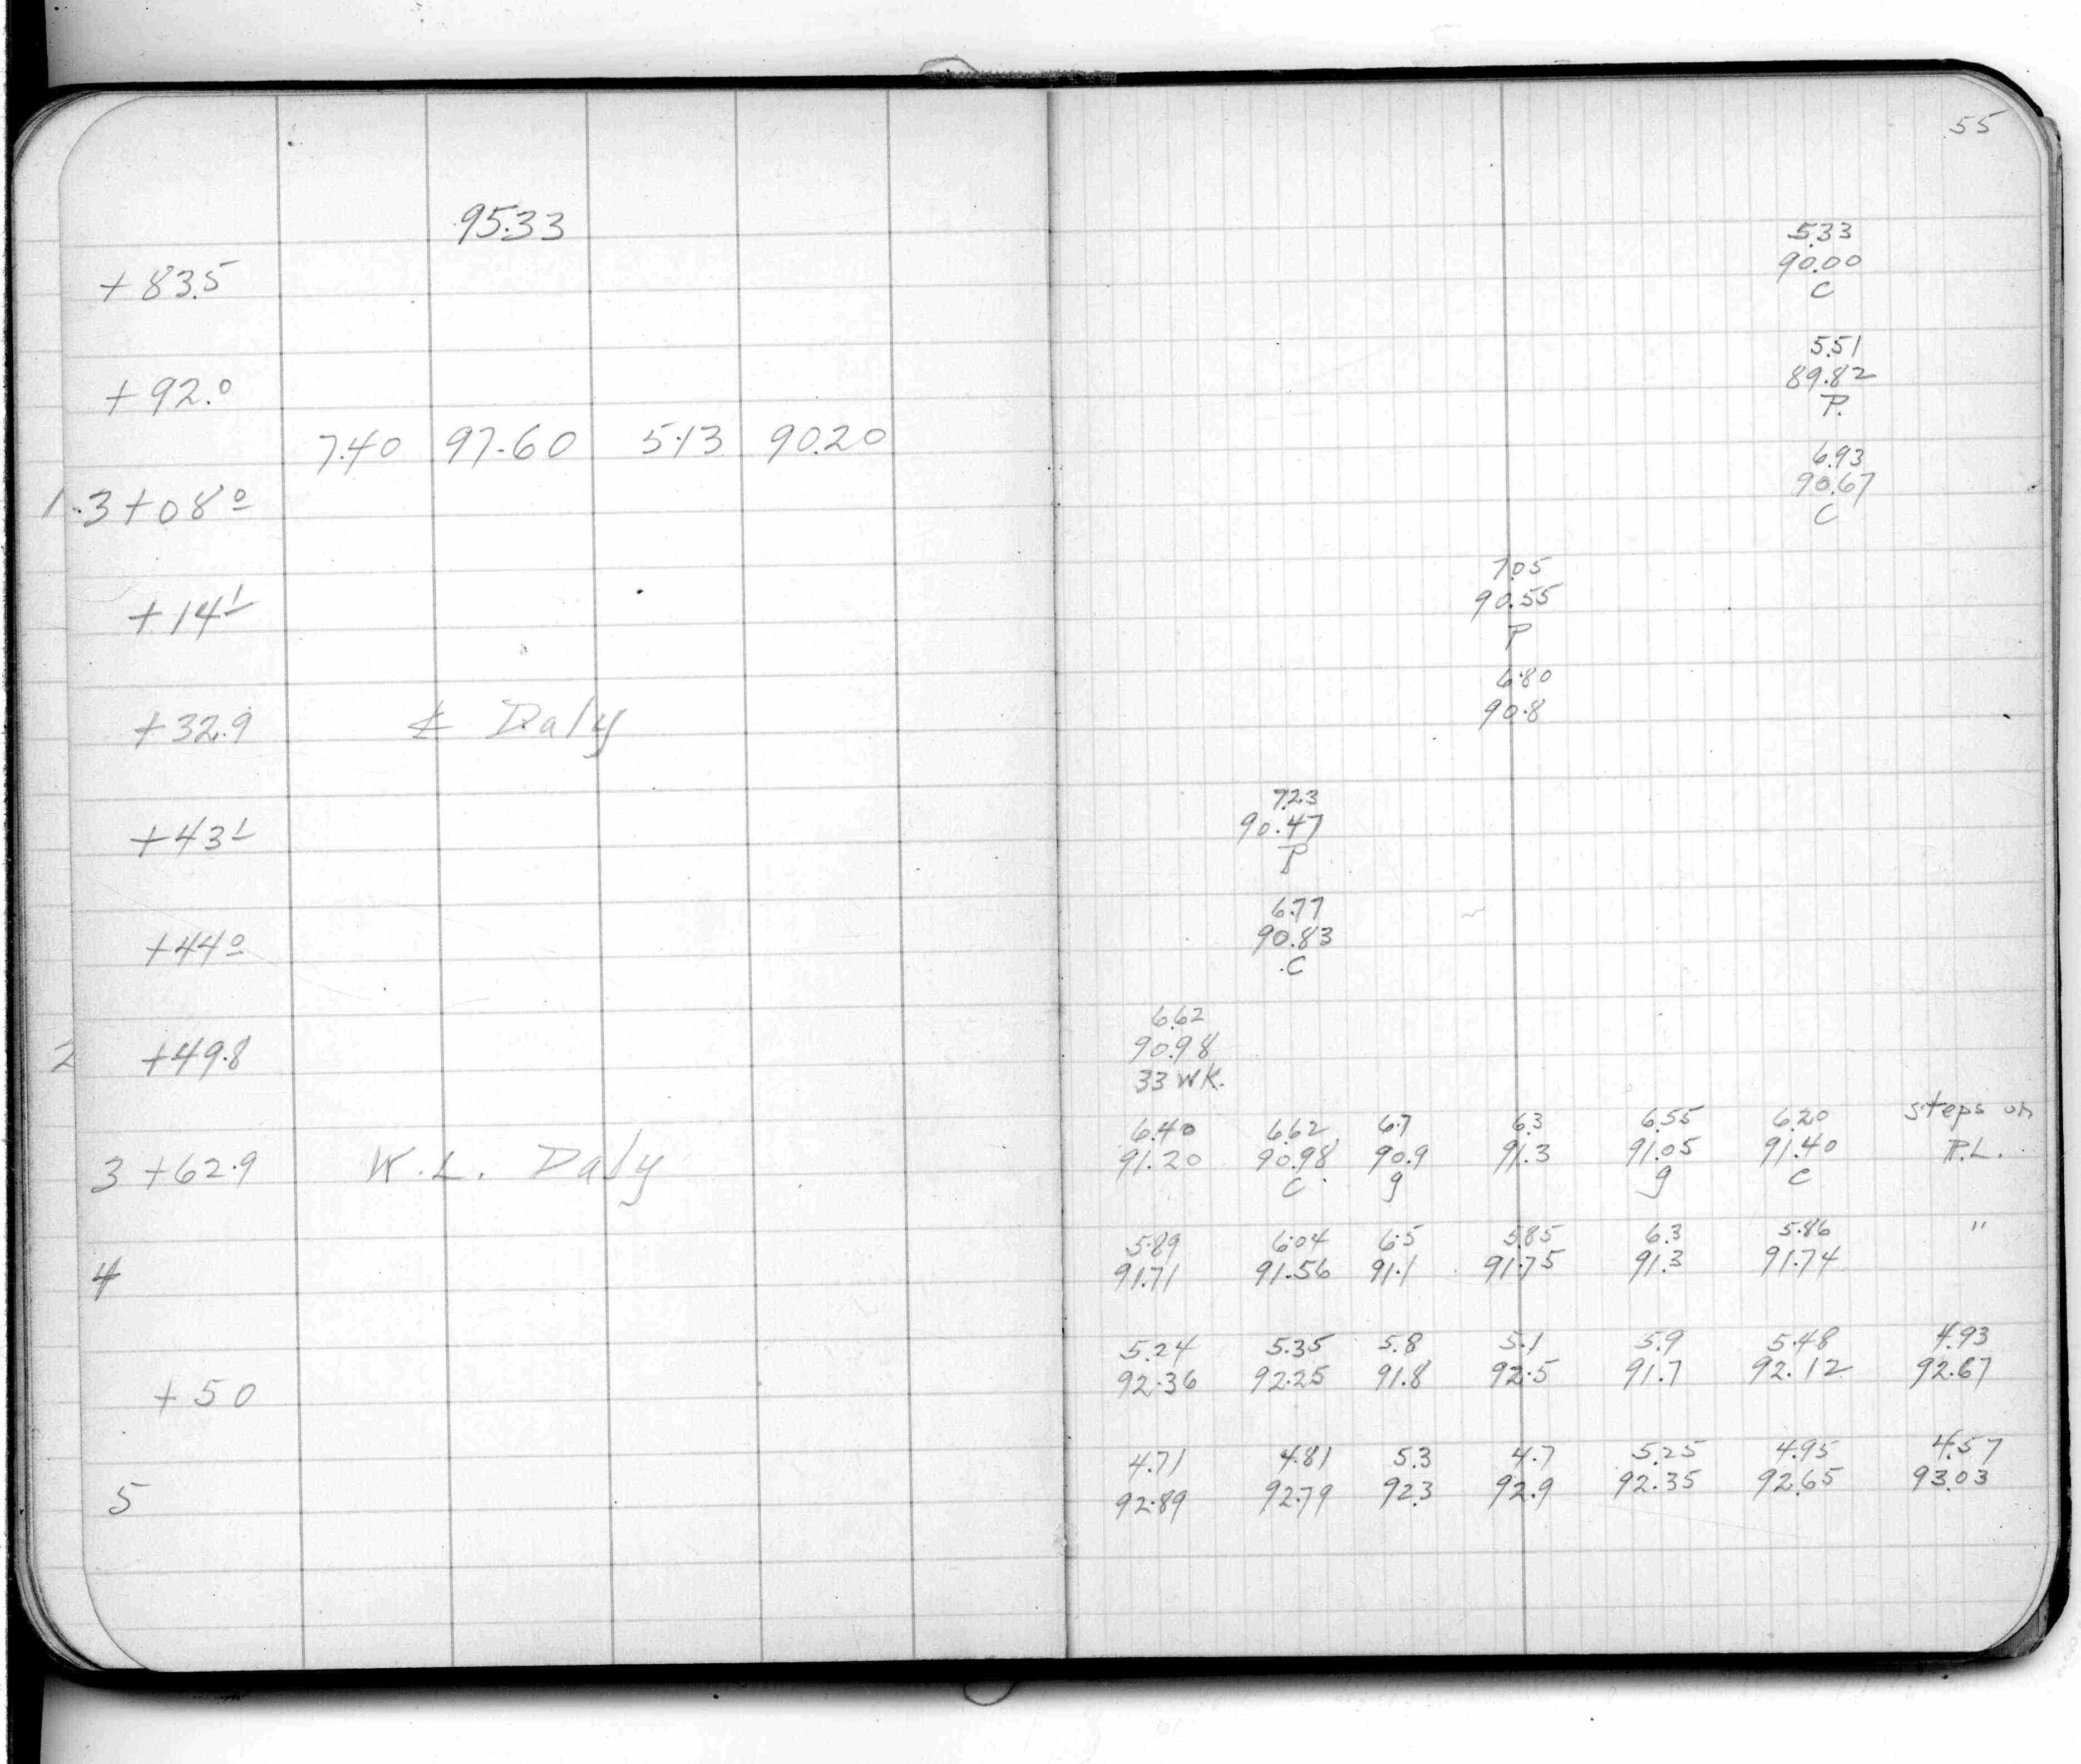 55
95.33
5.33
+83.5 90.00
C
5.51
+92.0 89.82
P.
7.40 97.60 5.13 90.20
6.93
1.3+08.0 90.67
C
7.05
+14.1 90.55
P
6.80
+32.9 ₵ Daly 90.8
7.23
+43.1 90.47
P
6.77
+44.0 90.83
C
6.62
2 +49.8 90.98
33 WK.
6.40 6.62 6.7 6.3 6.55 6.20 steps on
3+62.9 K.L. Daly 91.20 90.98 90.9 91.3 91.05 91.40 P.L.
C g g C
5.89 6.04 6.5 5.85 6.3 5.86 "
4 91.71 91.56 91.1 91.75 91.3 91.74
5.24 5.35 5.8 5.1 5.9 5.48 4.93
+50 92.36 92.25 91.8 92.5 91.7 92.12 92.67
4.71 4.81 5.3 4.7 5.25 4.95 4.57
5 92.89 92.79 92.3 92.9 92.35 92.65 93.03